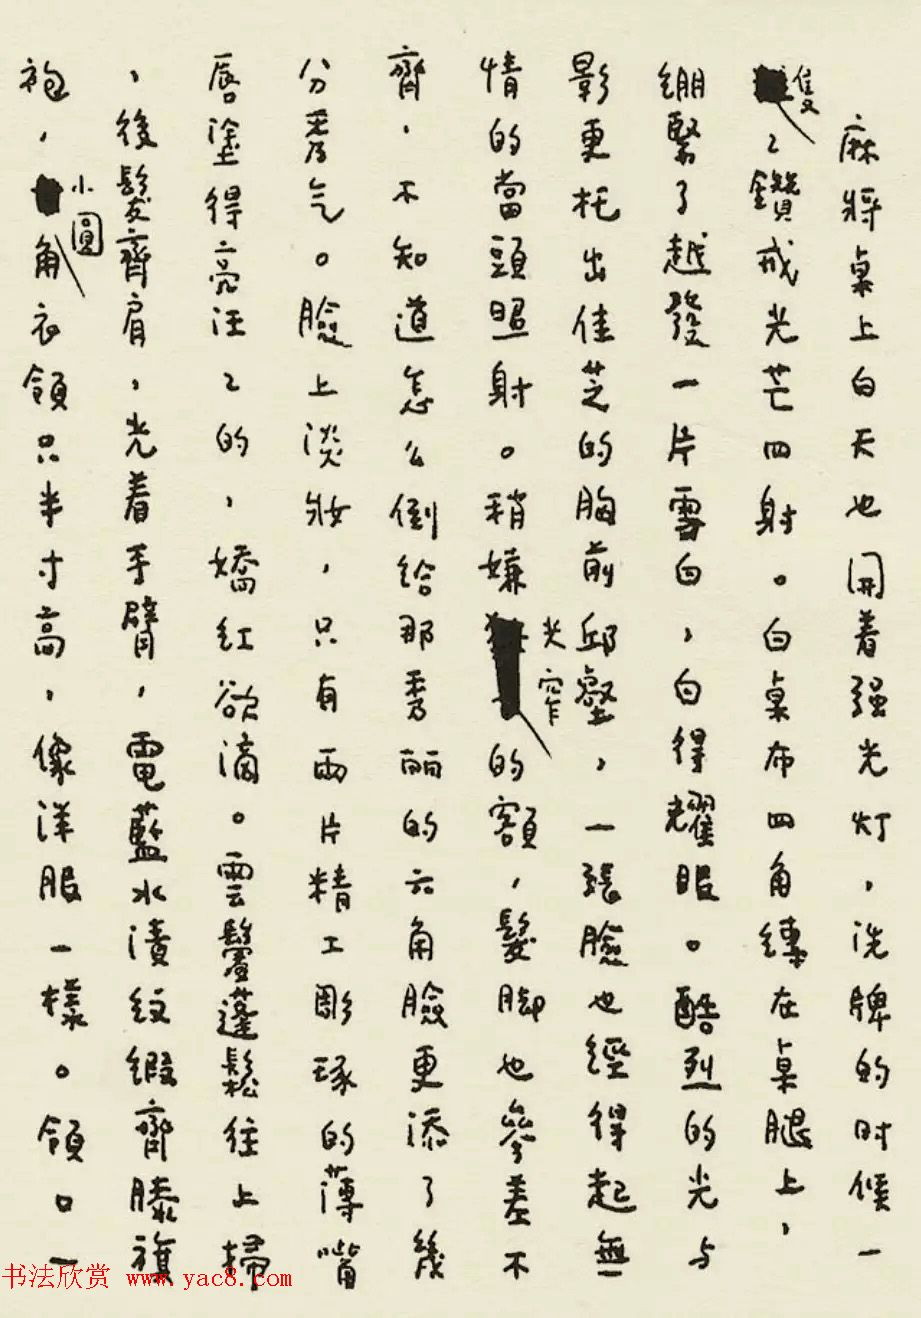 麻將桌上白天也開着强光灯，洗牌的时候一
隻〻鑽戒光芒四射。白桌布四角縛在桌腿上，
綳緊了越發一片雪白，白得耀眼。酷烈的光与
影更托出佳芝的胸前邱壑，一張臉也經得起無
情的當頭照射。稍嫌尖窄的額，髮脚也參差不
齊，不知道怎么倒給那秀丽的六角臉更添了幾
分秀气。臉上淡妝，只有両片精工彫琢的薄嘴
唇塗得亮汪〻的，嬌紅欲滴。雲鬢蓬鬆往上掃
，後髮齊肩，光着手臂，電藍水漬紋緞齊膝旗
袍，小圓角衣領只半寸高，像洋服一樣。領口一
书法欣赏 www.yac8.com